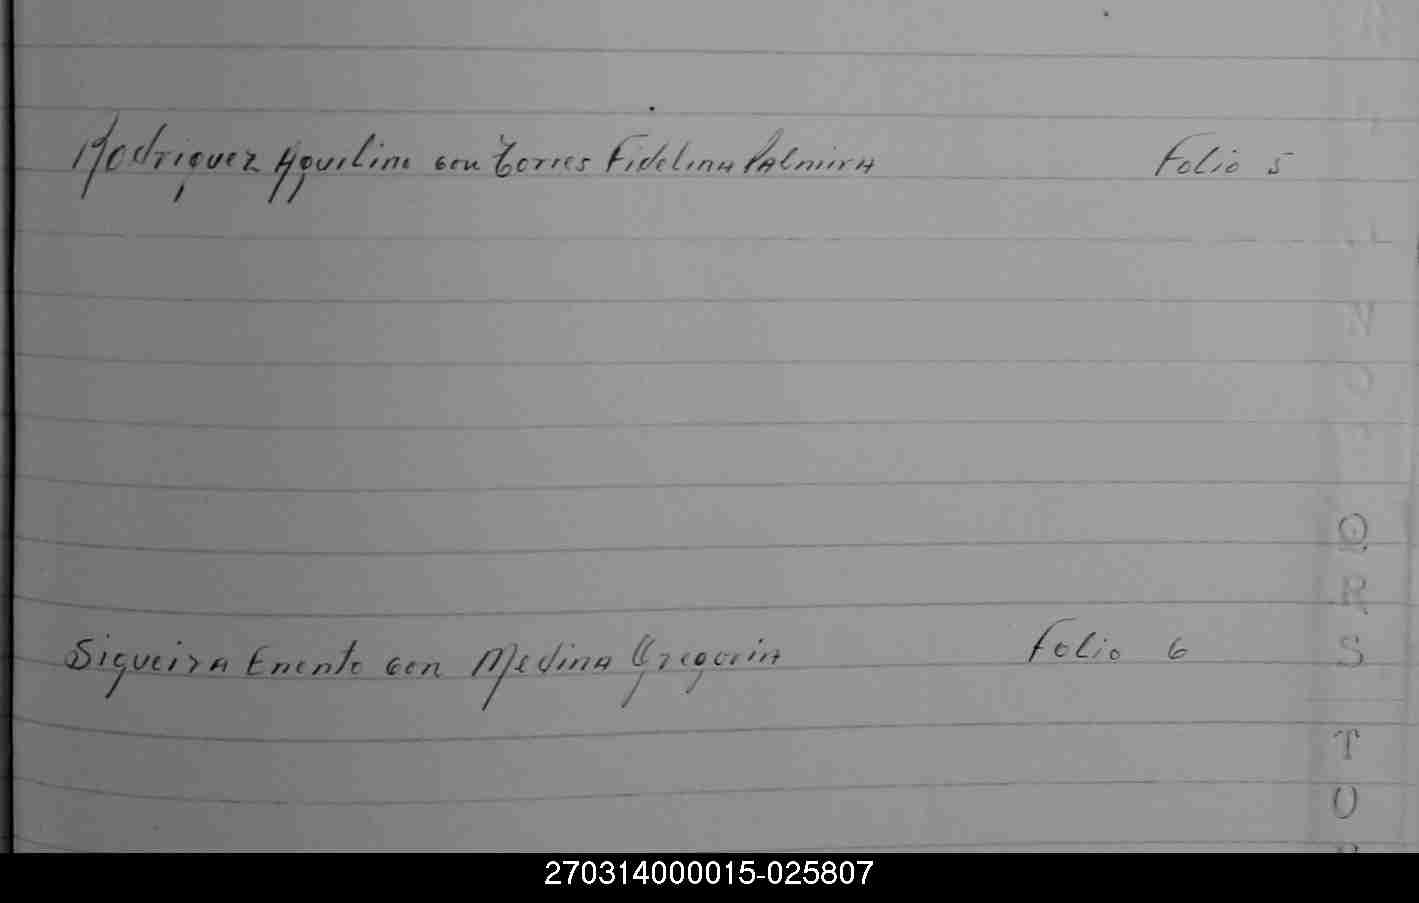 Rodriguez Aquilino con Torres Fidelina Palmira Folio 5
Q
R
Siqueira con Medina Gregoria Folio 6
S
T
U
270314000015-025807